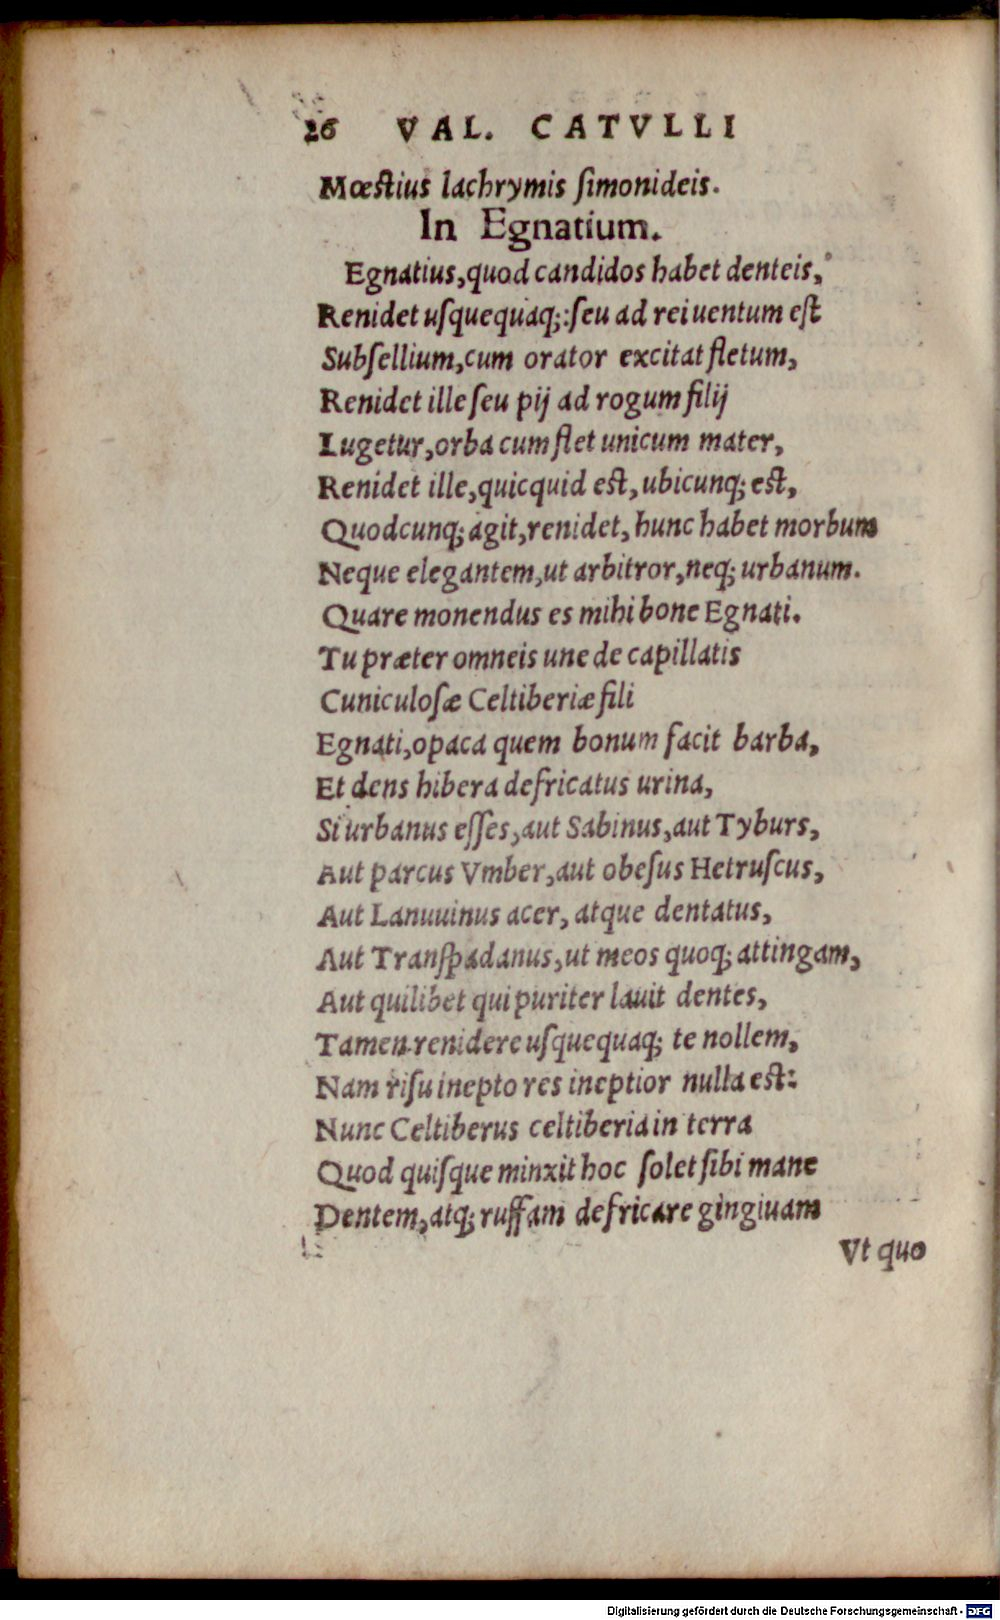 26 VAL. CATVLLI
Mœstius lachrymis ſimonideis.
In Egnatium.
Egnatius, quod candidos habet denteis,
Renidet uſquequaq;: ſeu ad rei uentum eſt
Subſellium, cum orator excitat fletum,
Renidet ille ſeu pij ad rogum filij
Lugetur, orba cum flet unicum mater,
Renidet ille, quicquid eſt, ubicunq; eſt,
Quodcunq; agit, renidet, hunc habet morbum
Neque elegantem, ut arbitror, neq; urbanum.
Quare monendus es mihi bone Egnati.
Tu præter omneis une de capillatis
Cuniculoſæ Celtiberiæ fili
Egnati, opaca quem bonum facit barba,
Et dens hibera defricatus urina,
Si urbanus eſſes, aut Sabinus, aut Tyburs,
Aut parcus Vmber, aut obeſus Hetruſcus,
Aut Lanuuinus acer, atque dentatus,
Aut Tranſpadanus, ut meos quoq; attingam,
Aut quilibet qui puriter lauit dentes,
Tamen renidere uſquequaq; te nollem,
Nam riſu inepto res ineptior nulla est:
Nunc Celtiberus celtiberia in terra
Quod quiſque minxit hoc ſolet ſibi mane
Dentem, atq; ruffam defricare gingiuam
Vt quo
Digitalisierung gefördert durch die Deutsche Forschungsgemeinschaft - DFG